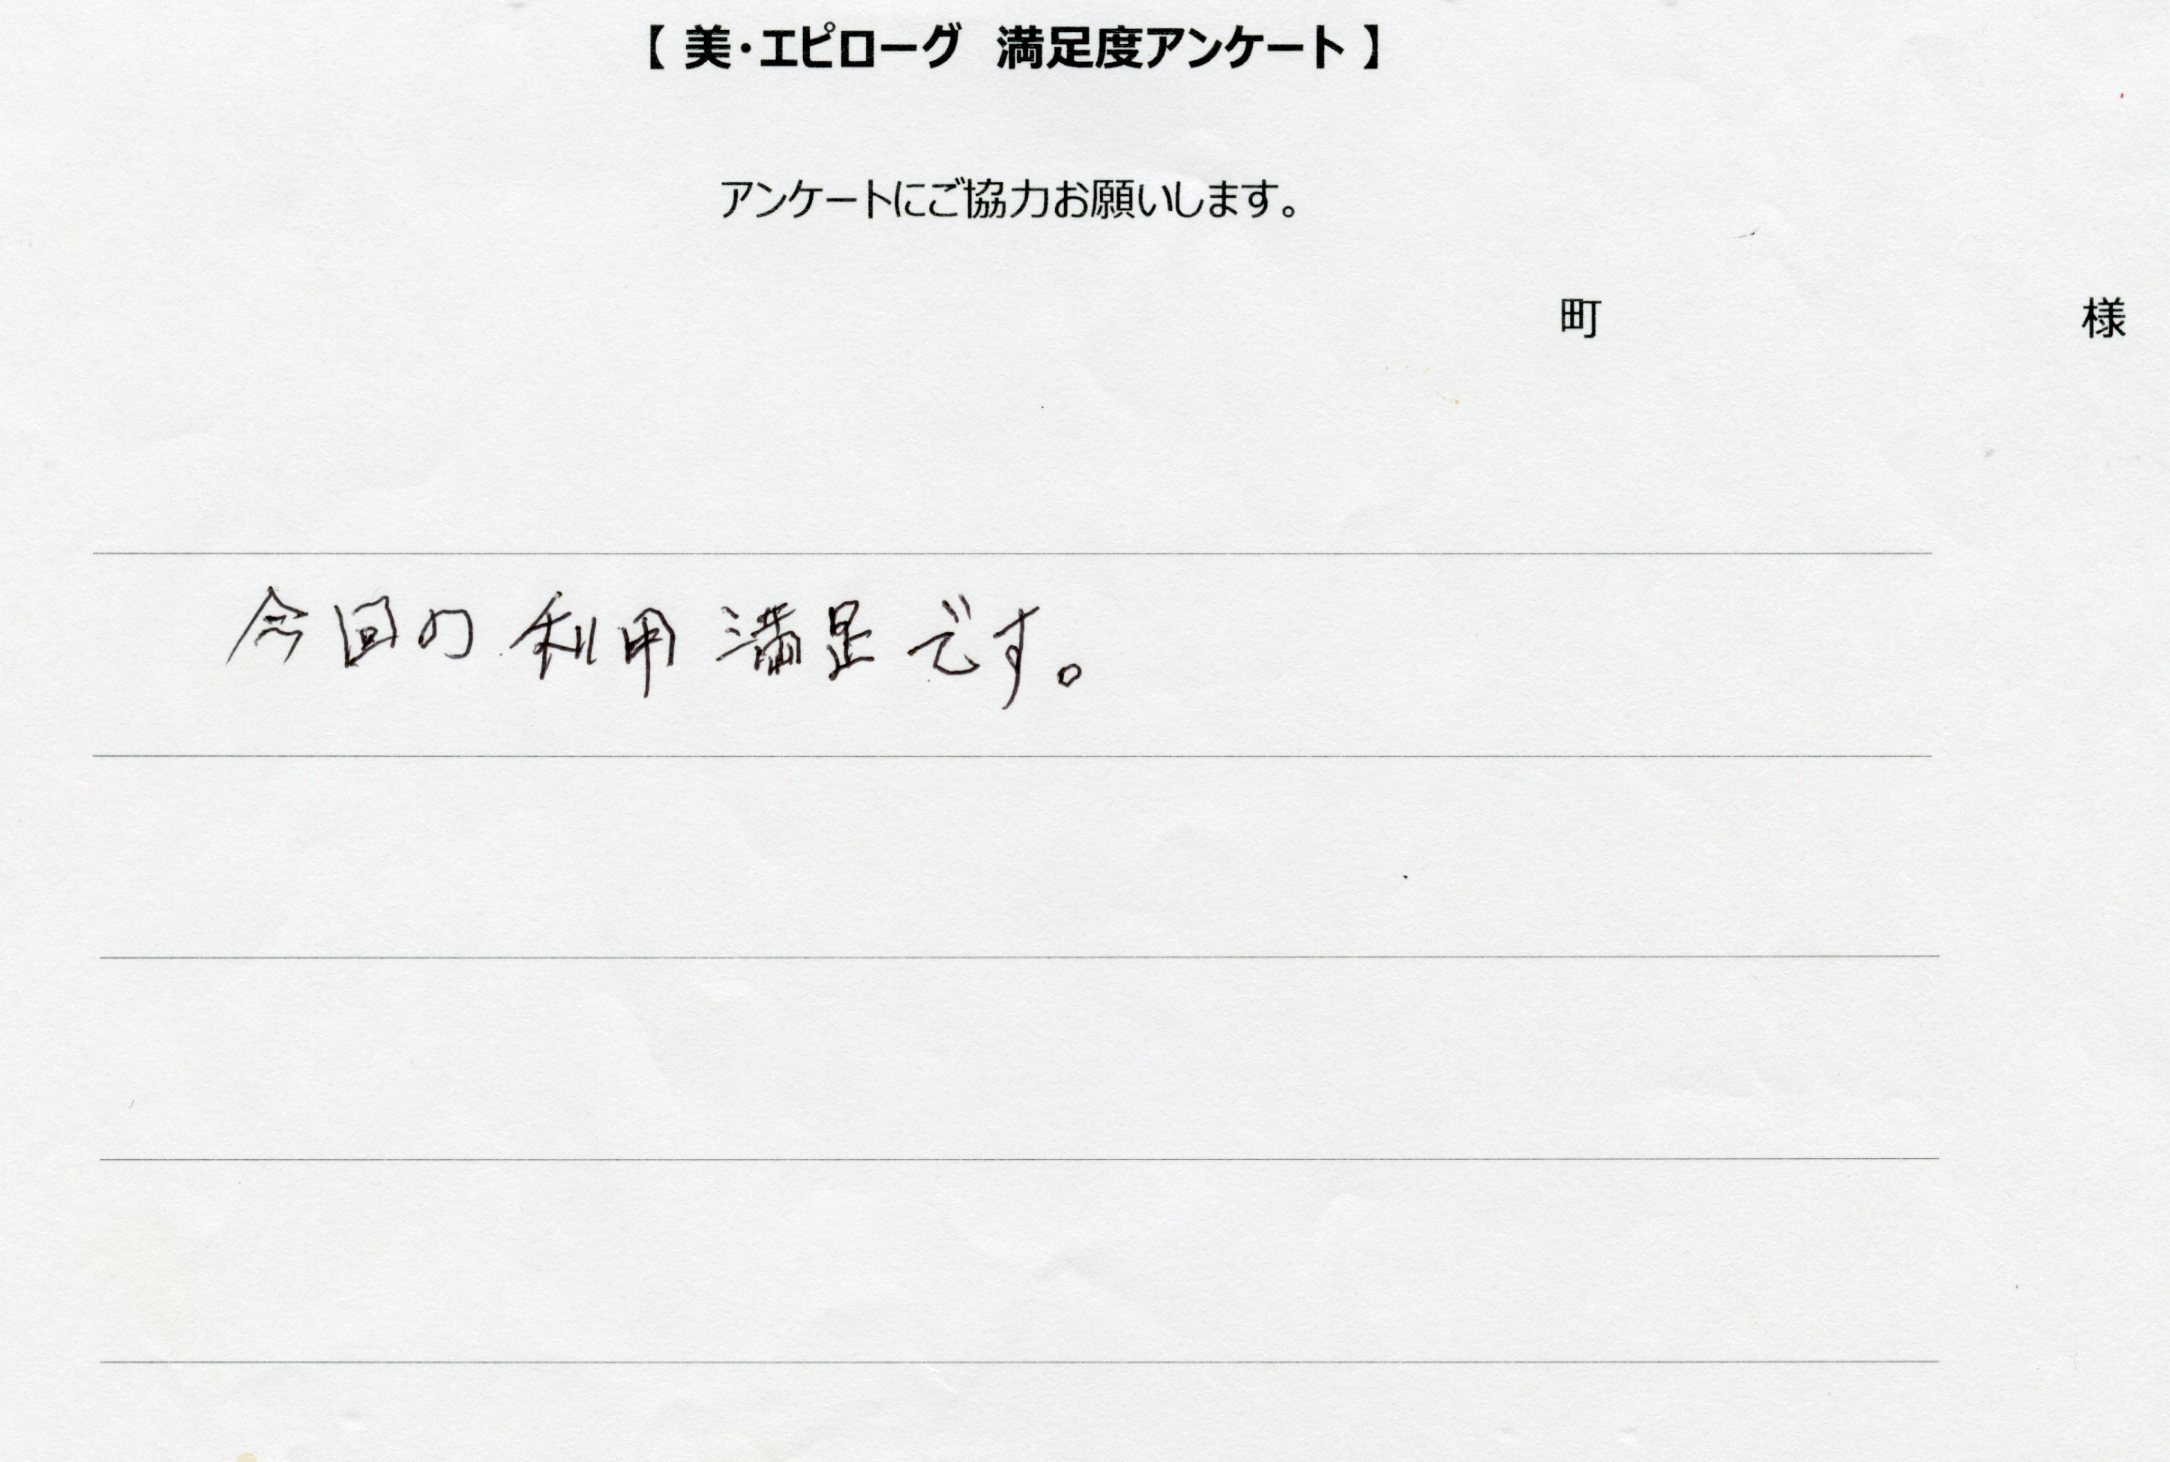 【 美・エピローグ 満足度アンケート 】
アンケートにご協力お願いします。
町 様
今回の利用満足です。